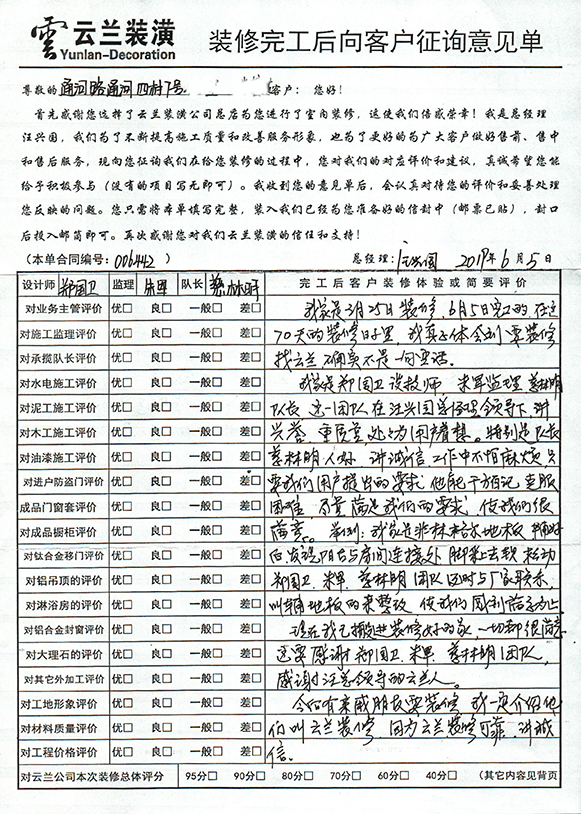 雲 云兰装潢
Yunlan-Decoration
装修完工后向客户征询意见单
尊敬的通河路通河四村7号 客户： 您好！
首先感谢您选择了云兰装潢公司总店为您进行了室内装修，这使我们倍感荣幸！我是总经理
汪兴国，我们为了不断提高施工质量和改善服务形象，也为了更好的为广大客户做好售前、售中
和售后服务，现向您征询我们在给您装修的过程中，您对我们的对应评价和建议，真诚希望您能
给予积极参与（没有的项目写无即可）。我收到您的意见单后，会认真对待您的评价和妥善处理
您反映的问题。您只需将本单填写完整，装入我们已经为您准备好的信封中（邮票已贴），封口
后投入邮筒即可。再次感谢您对我们云兰装潢的信任和支持！
（本单合同编号：006442 ） 总经理：汪兴国 2019年6月5日
设计师 郑国卫 监理 朱军 队长 蔡林明 完工后客户装修体验或简要评价
对业务主管评价 优□ 良□ 一般□ 差□ 我家是3月25日装修，6月5日完工的，在这
对施工监理评价 优□ 良□ 一般□ 差□ 70天的装修日子里，我真正体会到要装修
对承揽队长评价 优□ 良□ 一般□ 差□ 找云兰不确实不是一句空话。
对水电施工评价 优□ 良□ 一般□ 差□ 我家是郑国卫设计师 朱军监理 蔡林明
对泥工施工评价 优□ 良□ 一般□ 差□ 队长 这一团队在汪兴国总经理领导下，讲
对木工施工评价 优□ 良□ 一般□ 差□ 兴誉，重质量，处处为用户着想。特别是队长
对油漆施工评价 优□ 良□ 一般□ 差□ 蔡林明人好，讲诚信，工作中不怕麻烦，只
对进户防盗门评价 优□ 良□ 一般□ 差□ 要我们用户提出的要求，他能千方百计，克服
成品门窗套评价 优□ 良□ 一般□ 差□ 困难，尽量满足我们的要求，使我们很
对成品橱柜评价 优□ 良□ 一般□ 差□ 满意。举例：我家是非林格尔地板 铺好
对钛合金移门评价 优□ 良□ 一般□ 差□ 后发现阳台与房间连接处 脚踩上去软 松动
对铝吊顶的评价 优□ 良□ 一般□ 差□ 郑国卫、朱军、蔡林明团队及时与厂家联系，
对淋浴房的评价 优□ 良□ 一般□ 差□ 叫铺地板的来整改 使我们感到满意为止。
对铝合金封窗评价 优□ 良□ 一般□ 差□ 现在我已搬进装修好的家，一切都很满意
对大理石的评价 优□ 良□ 一般□ 差□ 这要感谢郑国卫、朱军、蔡林明团队，
对其它外加工评价 优□ 良□ 一般□ 差□ 感谢汪总领导的云兰人。
对工地形象评价 优□ 良□ 一般□ 差□ 今后有亲戚朋友要装修 我一定介绍他
对材料质量评价 优□ 良□ 一般□ 差□ 们叫云兰装修，因为云兰装修可靠，讲诚
对工程价格评价 优□ 良□ 一般□ 差□ 信。
对云兰公司本次装修总体评分 95分□ 90分□ 80分□ 70分□ 60分□ 40分□ （其它内容见背页